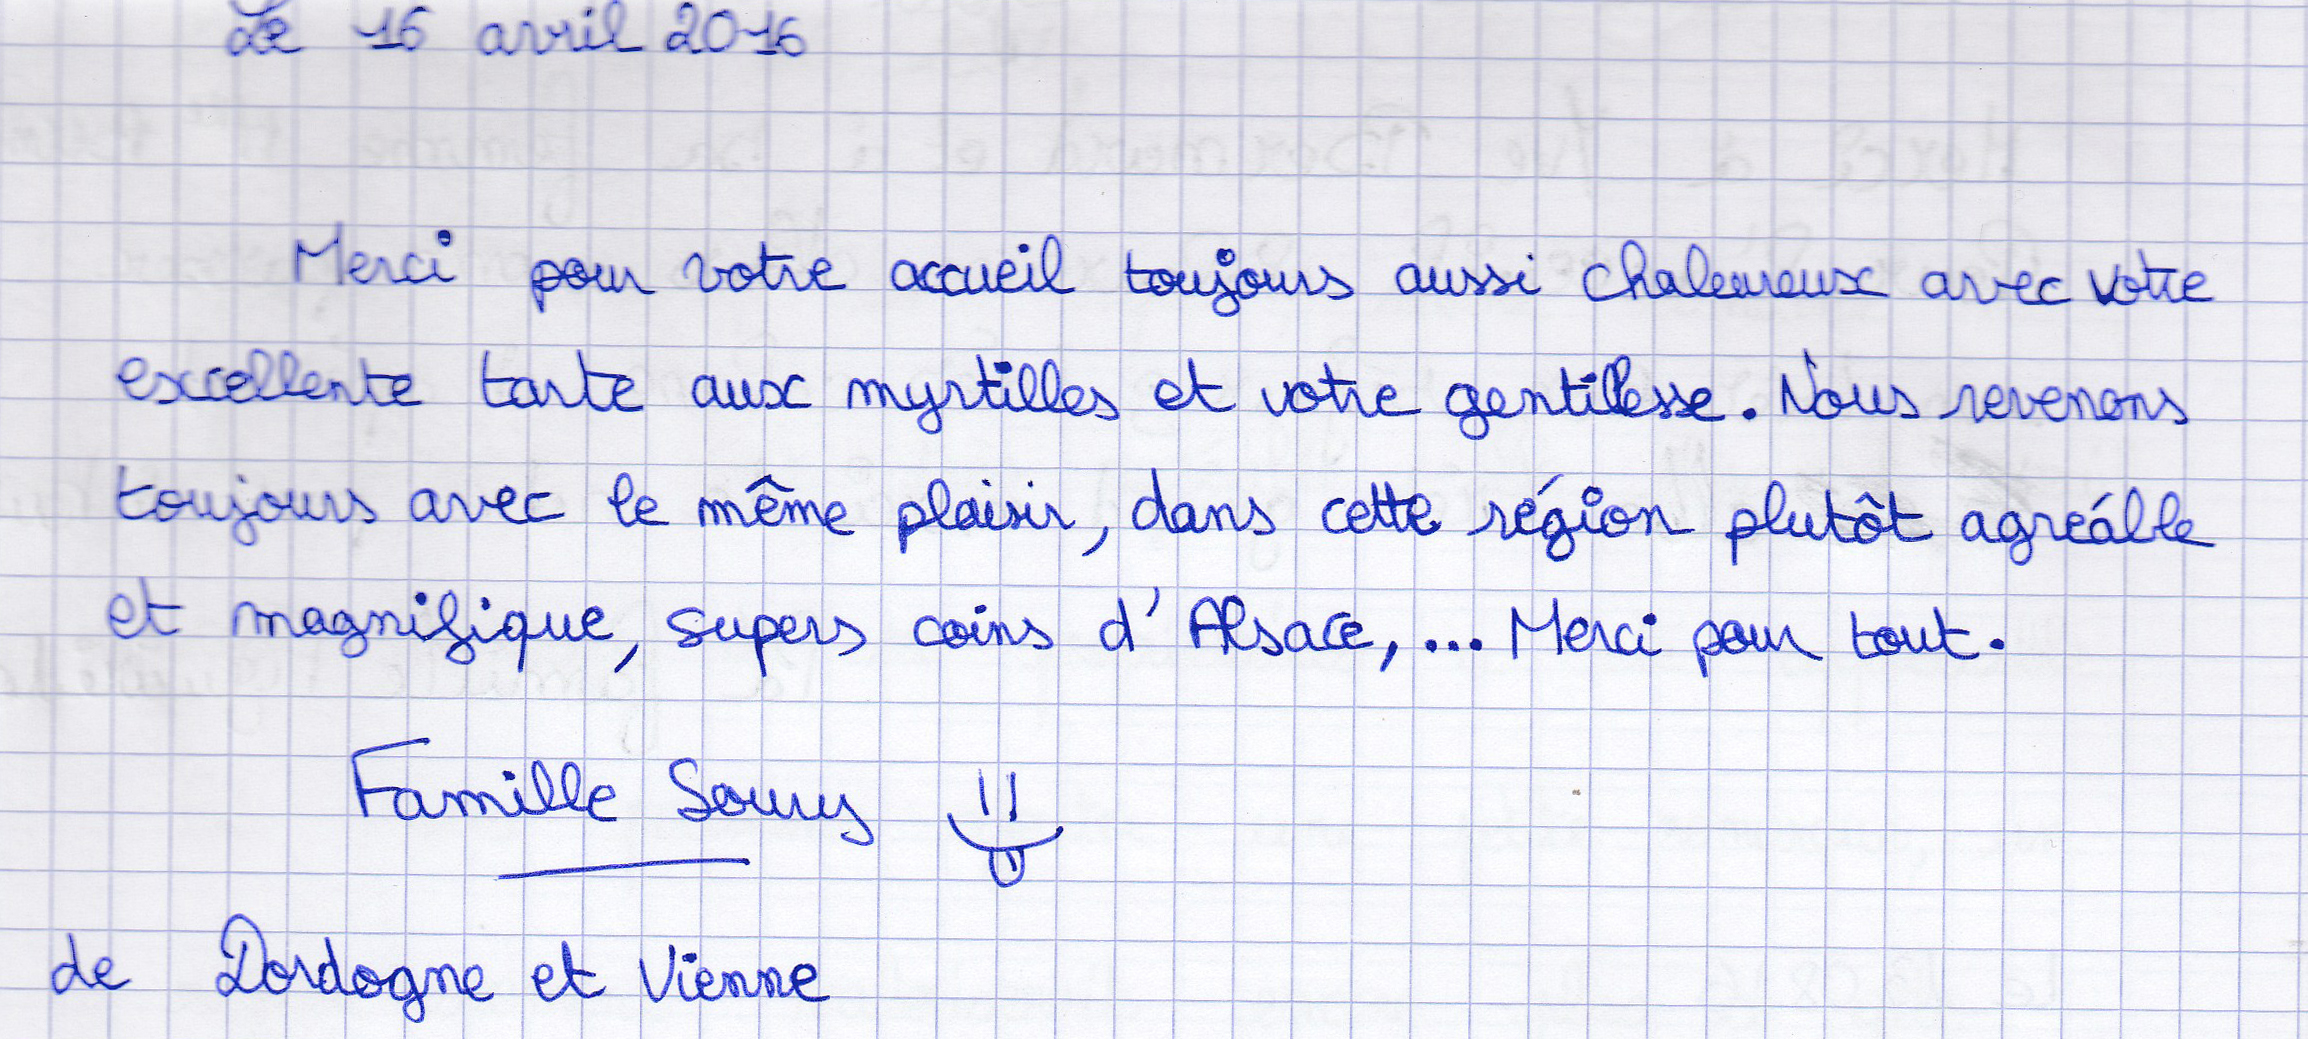 Le 16 avril 2016
Merci pour votre accueil toujours aussi chaleureux avec votre
excellente tarte aux myrtilles et votre gentillesse. Nous revenons
toujours avec le même plaisir, dans cette région plutôt agréable
et magnifique, supers coins d'Alsace,... Merci pour tout.
Famille Soury
de Dordogne et Vienne